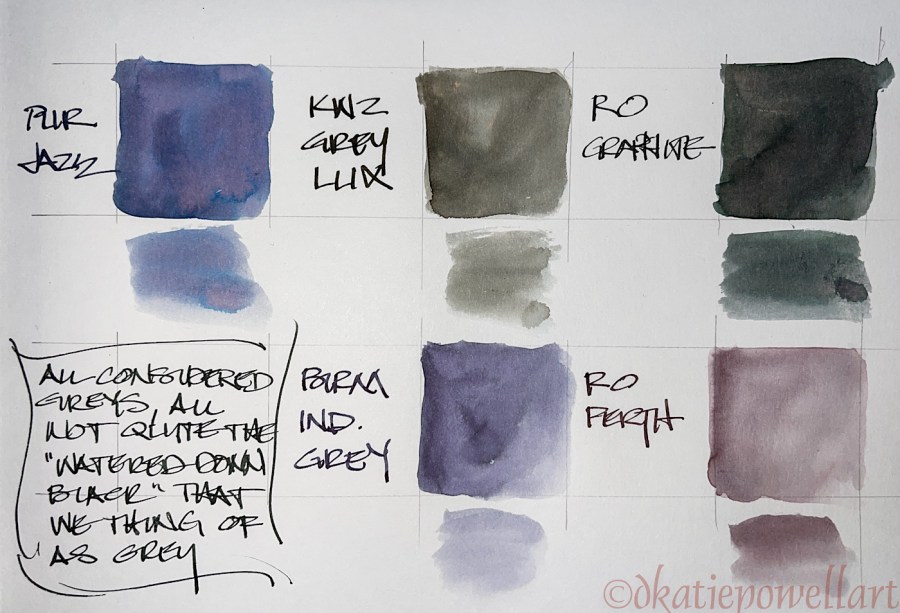 PLLR
JAZZ
KWZ
GREY
LUX
RO
GRAPHITE
ALL CONSIDERED
GREYS, ALL
NOT QUITE THE
"WATERED-DOWN
BLACK" THAT
WE THING OF
AS GREY
BIRM
IND.
GREY
RO
PERTH
©dkatiepowellart